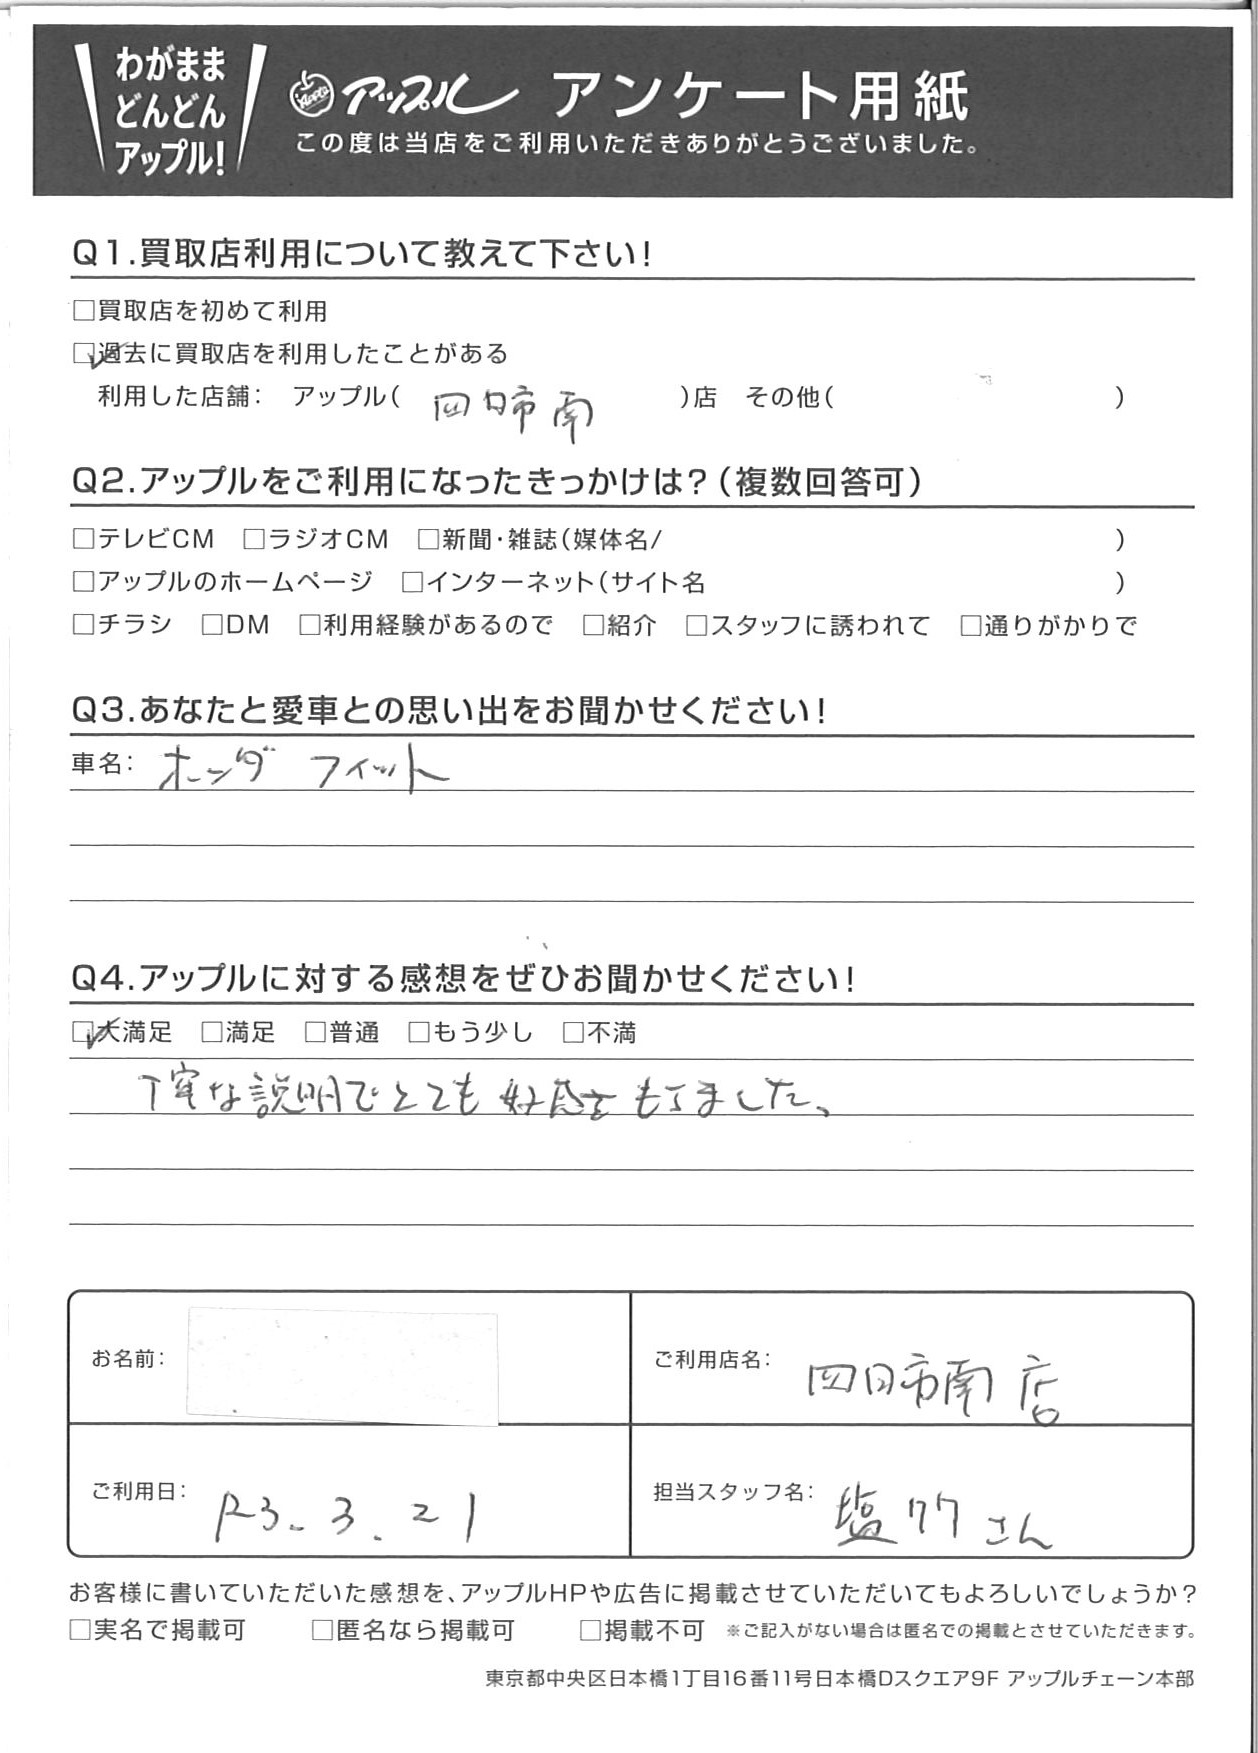 わがまま
どんどん
アップル!
Apple アップル アンケート用紙
この度は当店をご利用いただきありがとうございました。
Q1.買取店利用について教えて下さい!
□買取店を初めて利用
☑過去に買取店を利用したことがある
利用した店舗: アップル( 四日市南 )店 その他( )
Q2.アップルをご利用になったきっかけは?(複数回答可)
□テレビCM □ラジオCM □新聞・雑誌(媒体名/ )
□アップルのホームページ □インターネット(サイト名 )
□チラシ □DM □利用経験があるので □紹介 □スタッフに誘われて □通りがかりで
Q3.あなたと愛車との思い出をお聞かせください!
車名: ホンダ フィット
Q4.アップルに対する感想をぜひお聞かせください!
☑大満足 □満足 □普通 □もう少し □不満
丁寧な説明でとても好感をもてました。
お名前:
ご利用店名: 四日市南店
ご利用日: R3.3.21
担当スタッフ名: 塩竹さん
お客様に書いていただいた感想を、アップルHPや広告に掲載させていただいてもよろしいでしょうか?
□実名で掲載可 □匿名なら掲載可 □掲載不可 ※ご記入がない場合は匿名での掲載とさせていただきます。
東京都中央区日本橋1丁目16番11号日本橋Dスクエア9F アップルチェーン本部